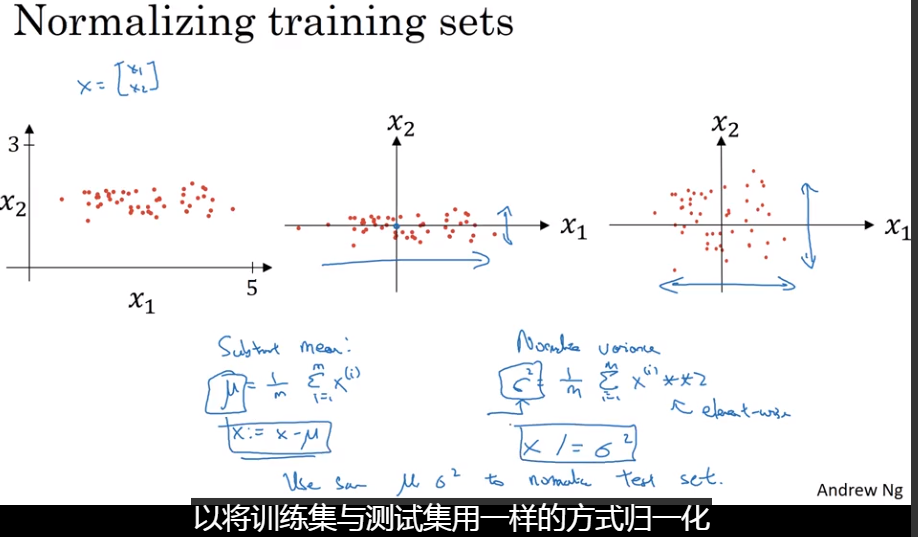 Normalizing training sets
x = [x1 x2]
3
x2
x1
5
x2
x1
x2
x1
Subtract mean:
μ = 1/m Σ i=1 m x(i)
x := x - μ
Normalize variance
σ² = 1/m Σ i=1 m x(i) ** 2
element-wise
x /= σ²
Use same μ σ² to normalize test set.
Andrew Ng
以将训练集与测试集用一样的方式归一化